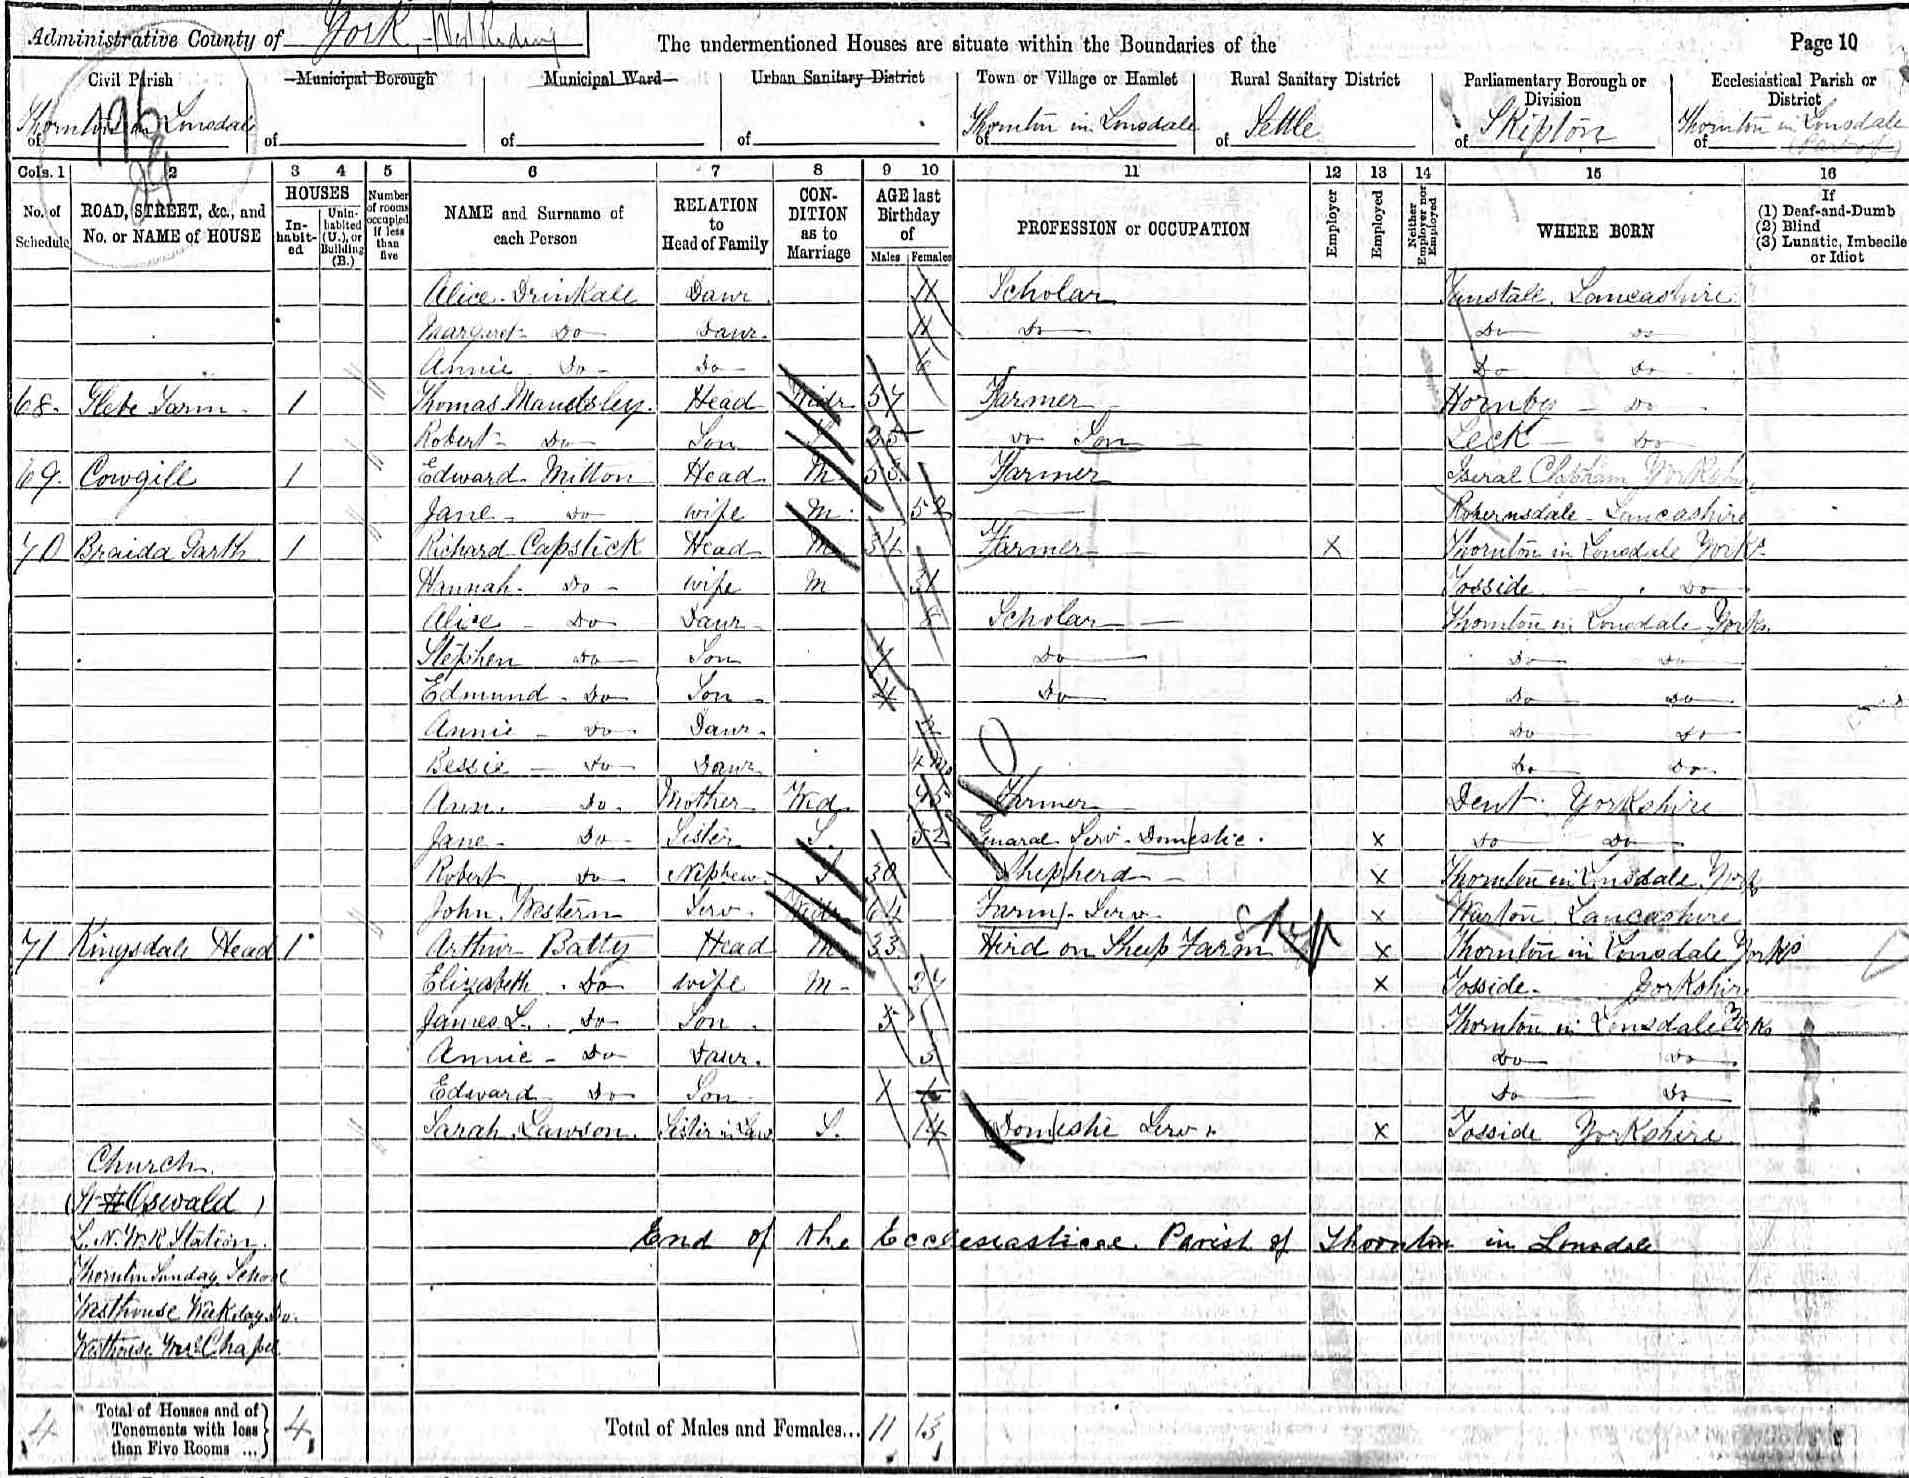 Administrative County of York, West Riding
The undermentioned Houses are situate within the Boundaries of the
Page 10
Civil Parish
Municipal Borough
Municipal Ward
Urban Sanitary District
Town or Village or Hamlet
Rural Sanitary District
Parliamentary Borough or Division
Ecclesiastical Parish or District
of Thornton in Lonsdale
of
of
of
of Thornton in Lonsdale
of Settle
of Skipton
of Thornton in Lonsdale (Part of)
Cols. 1 2 3 4 5 6 7 8 9 10 11 12 13 14 15 16
No. of Schedule
ROAD, STREET, &c., and No. or NAME of HOUSE
HOUSES
Inhabited
Uninhabited (U.), or Building (B.)
Number of rooms occupied if less than five
NAME and Surname of each Person
RELATION to Head of Family
CONDITION as to Marriage
AGE last Birthday of
Males Females
PROFESSION or OCCUPATION
Employer
Employed
Neither Employer nor Employed
WHERE BORN
If
(1) Deaf-and-Dumb
(2) Blind
(3) Lunatic, Imbecile or Idiot
Alice Drinkall Daur 11 Scholar Tunstall, Lancashire
Margaret Do Daur. 11 Do Do Do
Annie Do Do 6 Do Do
68. Glebe Farm 1 Thomas Maudsley. Head Widr 57 Farmer Hornby Do
Robert Do Son S 25 Do Son Leck Do
69. Cowgill 1 Edward Mitton Head M 53 Farmer Clapham Yorkshire
Jane Do wife M 52 Lancashire
70 Braida Garth 1 Richard Capstick Head M 34 Farmer X Thornton in Lonsdale Yorks
Hannah Do wife M 31 Tosside Do
Alice Do Daur 8 Scholar Thornton in Lonsdale Yorks
Stephen Do Son 7 Do Do Do
Edmund Do Son 4 Do Do Do
Annie Do Daur. 2 Do Do
Bessie Do Daur 4 mo Do Do
Ann. Do Mother Wid. Farmer Dent Yorkshire
Jane Do Sister S. 52 General Serv. Domestic. X Do Do
Robert Do Nephew S 30 Shepherd X Thornton in Lonsdale York
John Western Serv. Widr 64 Farm Serv X Warton Lancashire
71 Kingsdale Head 1 Arthur Batty Head M 33 Hird on Sheep Farm X Thornton in Lonsdale Yorks
Elizabeth Do wife M X Tosside Yorkshire
James L. Do Son 5 Thornton in Lonsdale Yorks
Annie Do Daur. 3 Do Do
Edward Do Son Do Do
Sarah Lawson Sister in Law S. 14 Domestic Serv. X Tosside Yorkshire
Church
(St Oswald)
L. N. W. R Station.
Thornton Sunday School
Westhouse Weekday Do.
Westhouse Chapel
End of the Ecclesiastical Parish of Thornton in Lonsdale
4 Total of Houses and of Tenements with less than Five Rooms ... 4
Total of Males and Females... 11 13